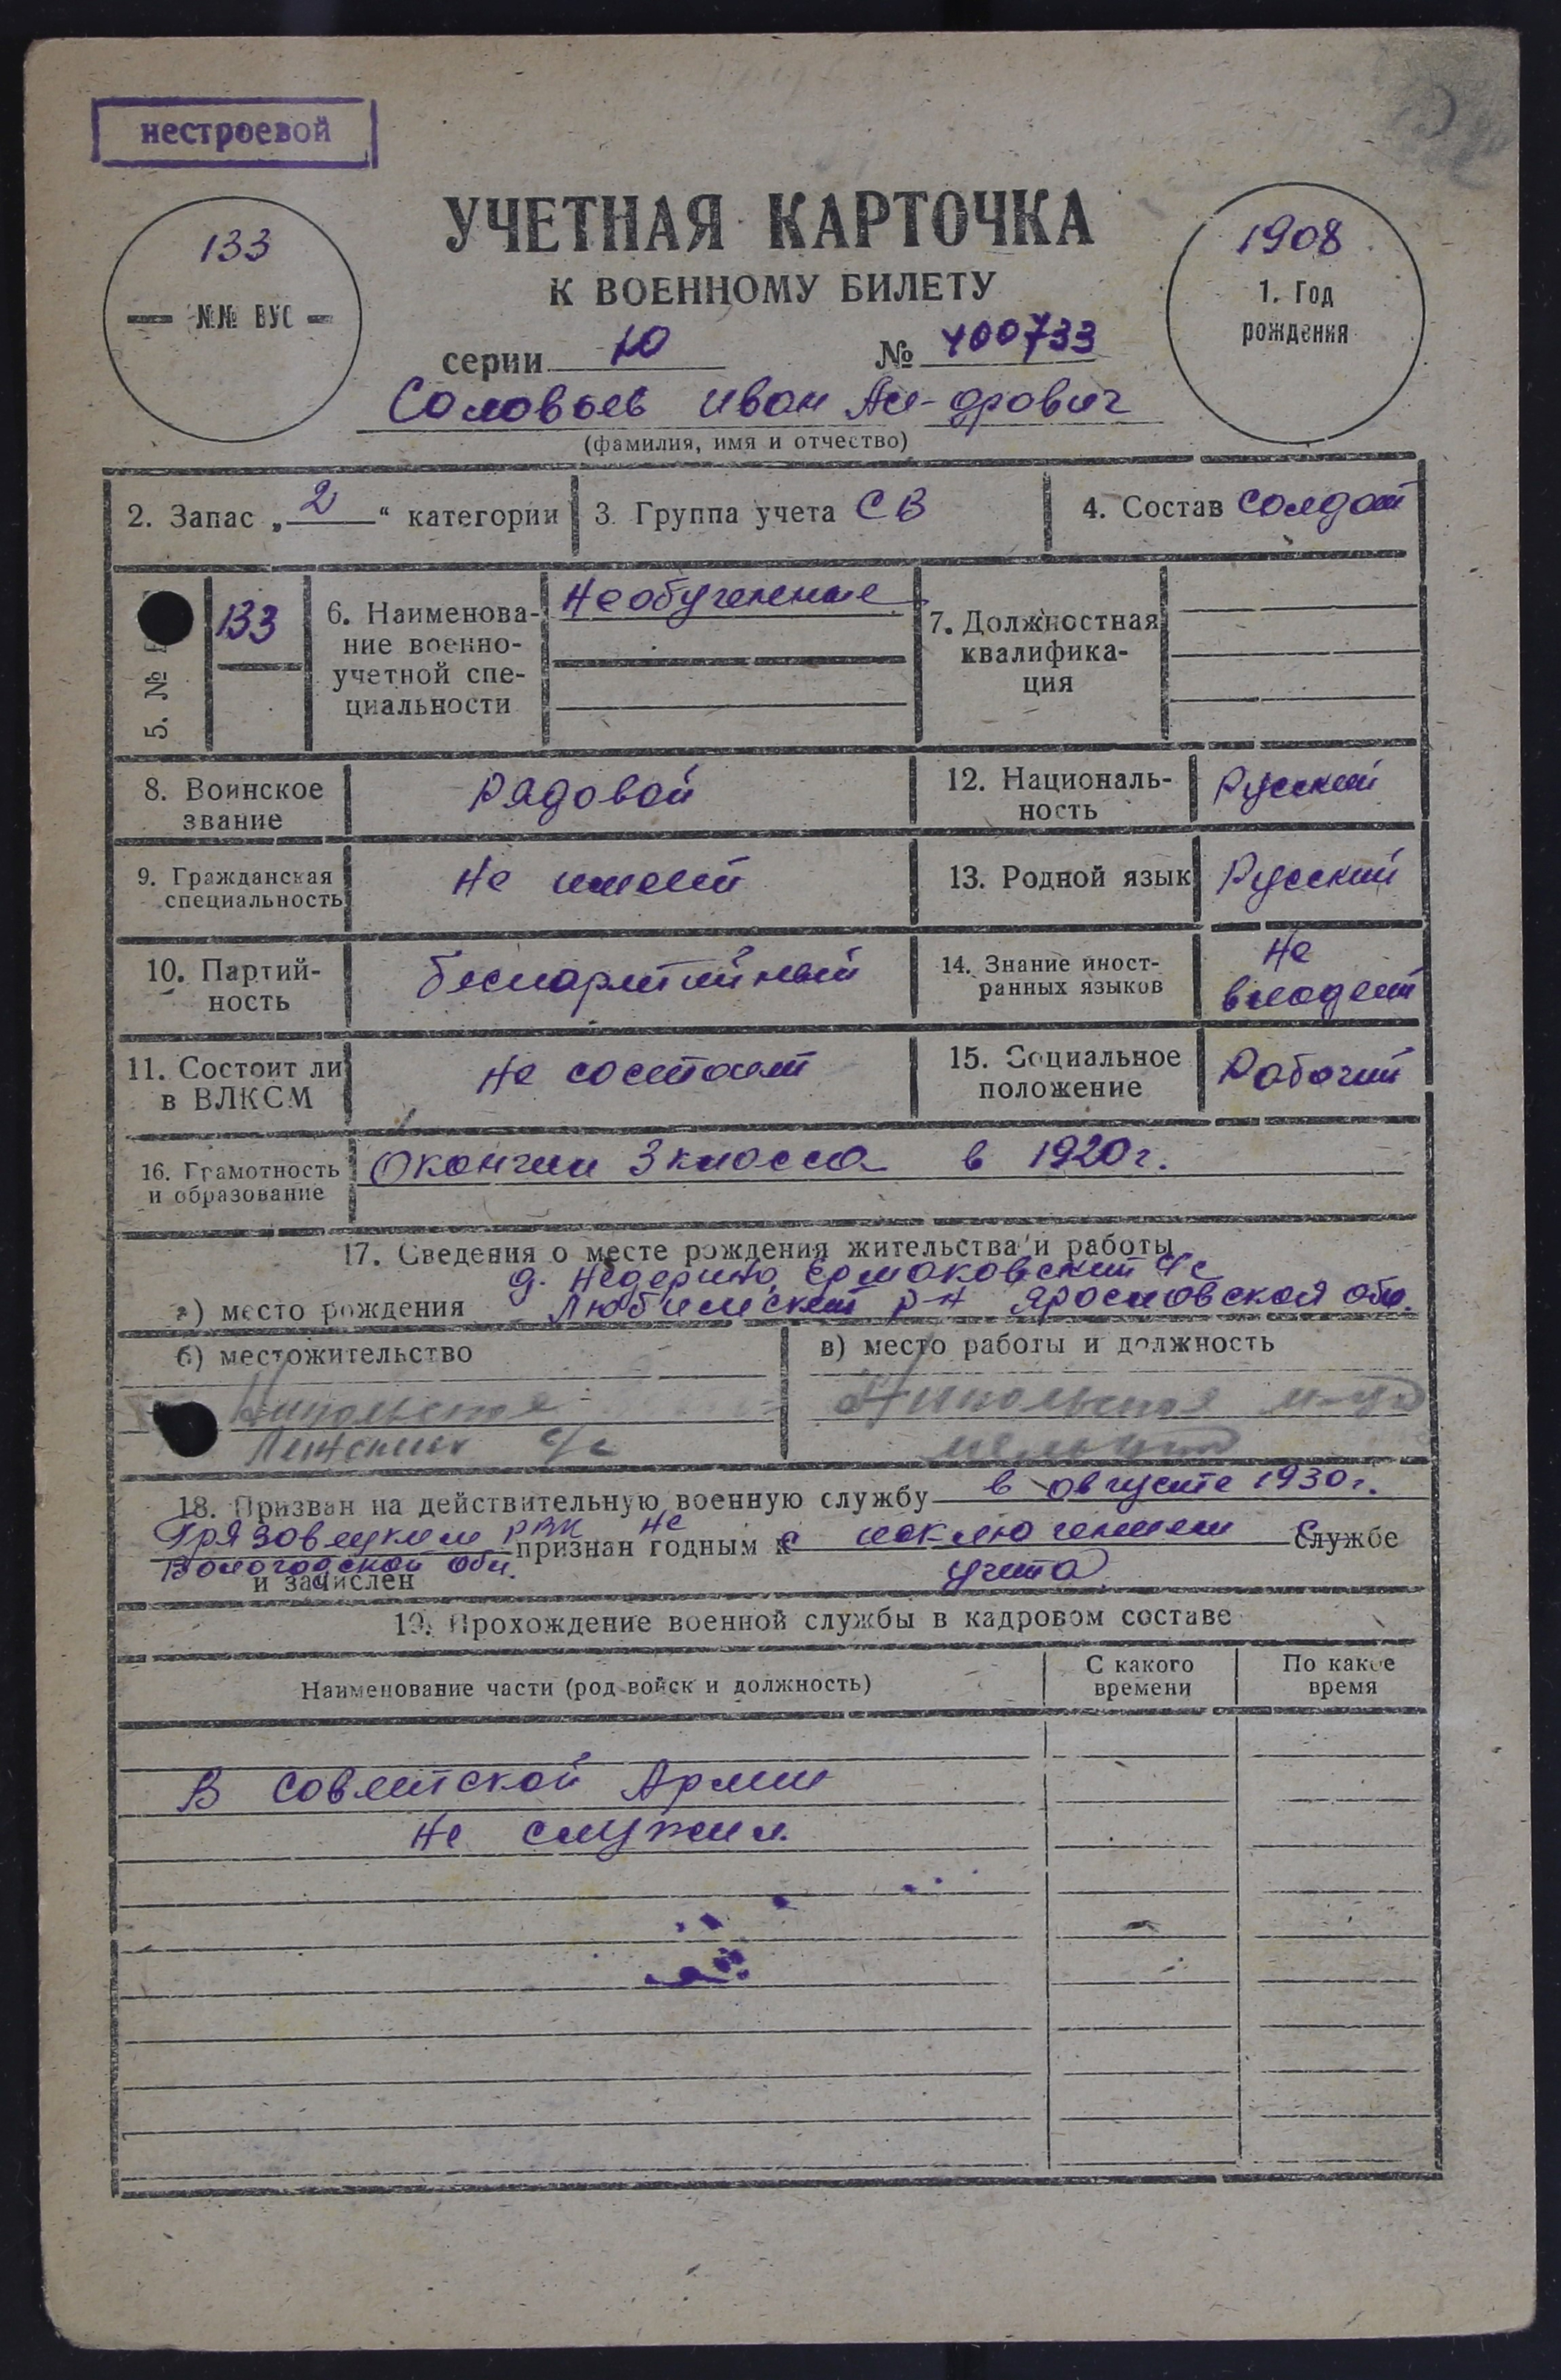 нестроевой
133
— №№ ВУС —
УЧЕТНАЯ КАРТОЧКА
К ВОЕННОМУ БИЛЕТУ
серии Ю № 400733
Соловьев Иван Ан-дрович
(фамилия, имя и отчество)
1908
1. Год
рождения
2. Запас „2“ категории
3. Группа учета СВ
4. Состав солдат
5. №
133
6. Наименова-
ние военно-
учетной спе-
циальности
Необученные
7. Должностная
квалифика-
ция
8. Воинское
звание
Рядовой
12. Националь-
ность
Русский
9. Гражданская
специальность
Не имеет
13. Родной язык
Русский
10. Партий-
ность
беспартийный
14. Знание иност-
ранных языков
Не
владеет
11. Состоит ли
в ВЛКСМ
Не состоит
15. Социальное
положение
Рабочий
16. Грамотность
и образование
Окончил 3 класса в 1920 г.
17. Сведения о месте рождения жительства и работы
д. Недерино, Ермаковский с/с
а) место рождения Любимский р-н Ярославской обл.
б) местожительство
Никольское
Ленского с/с
в) место работы и должность
Никольская
18. Призван на действительную военную службу в августе 1930 г.
Грязовецким РВК не
признан годным к с исключением с службе
Вологодской обл.
и зачислен учета
19. Прохождение военной службы в кадровом составе
Наименование части (род войск и должность)
С какого
времени
По какое
время
В Советской Армии
не служил.